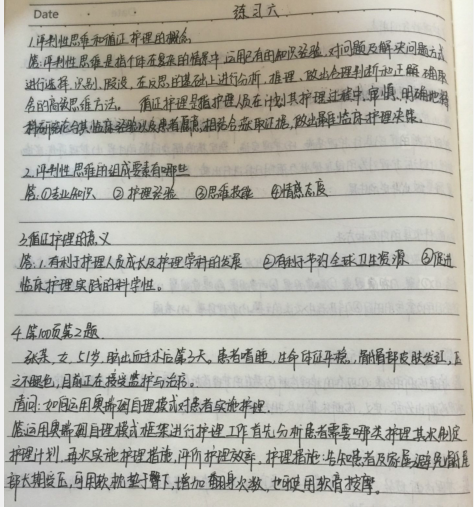 Date 练习六
1.评判性思维和循证护理的概念
答:评判性思维是指个体在复杂的情景中,运用已有的知识经验,对问题及解决问题方式
进行选择,识别,假设,在反思的基础上进行分析,推理,做出合理判断和正确取
舍的高级思维方法。 循证护理是指护理人员在计划其护理过程中,审慎,明确地将
科研结论与其临床经验以及患者愿望相结合获取证据,做出最佳临床护理决策。
2.评判性思维的组成要素有哪些
答:①专业知识 ②护理经验 ③思维技能 ④情感态度
3.循证护理的意义
答:1.有利于护理人员成长及护理学科的发展 ②有利于节约全球卫生资源 ③促进
临床护理实践的科学性。
4.第100页第2题.
张某,女,51岁,脑出血手术后第3天。患者嗜睡,生命体征平稳,骶尾部皮肤发红,压
之不褪色,目前正在接受监护与治疗。
请问:如何运用奥瑞姆自理模式对患者实施护理.
答:运用奥瑞姆自理模式框架进行护理工作首先,分析患者需要哪类护理其次制定
护理计划,再次实施护理措施,评价护理效率,护理措施:告知患者及家属避免骶尾
部长期受压,可用软枕垫于臀下,增加翻身次数,也可使用软膏按摩。